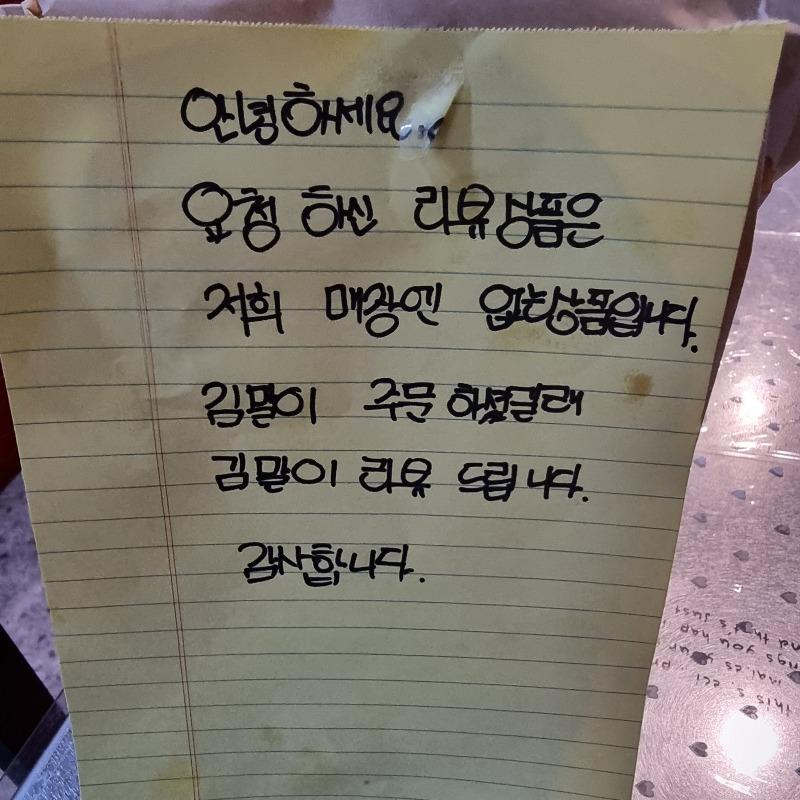 안녕하세요..
요청 하신 리뷰상품은
저희 매장엔 없는상품입니다.
김말이 주문 하셨길래
김말이 리뷰 드립니다.
감사합니다.